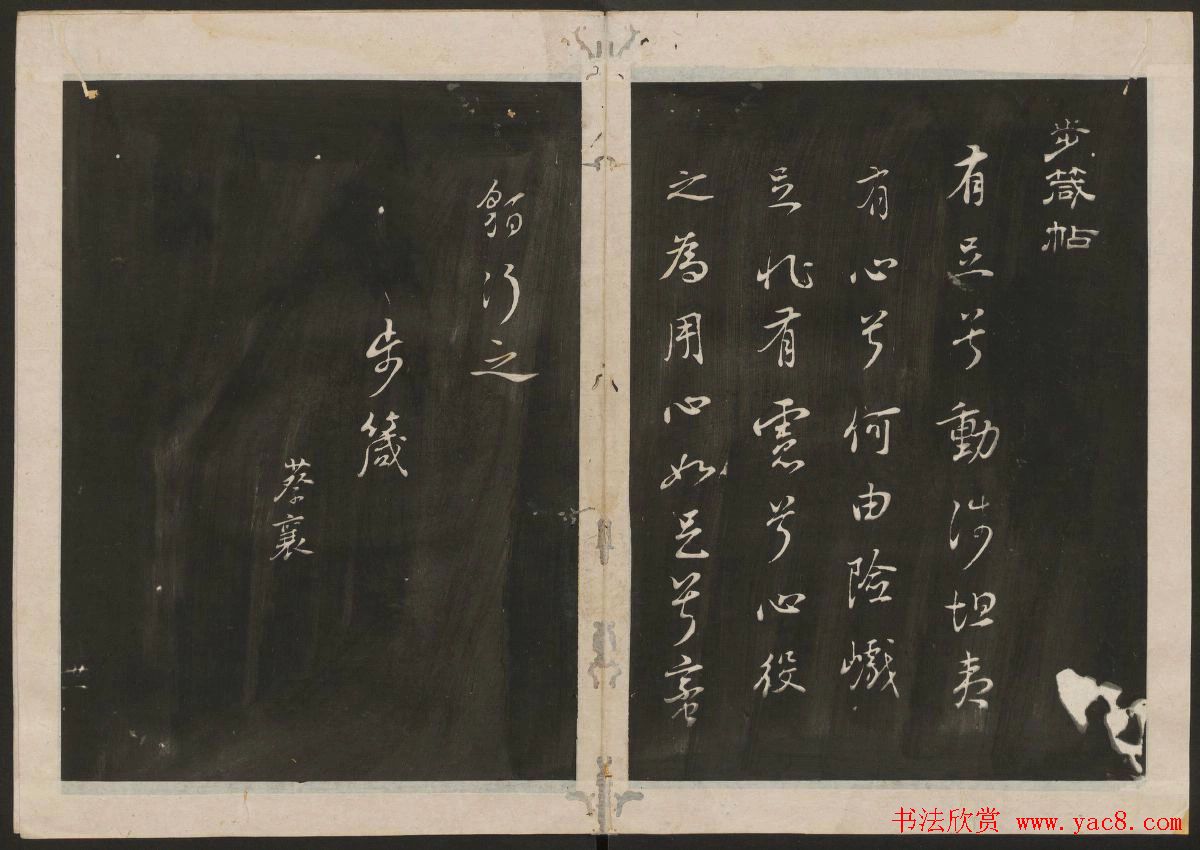 步箴帖
有足兮動涉坦夷
有心兮何由險巇
足非有慮兮心役
之為用心如足兮蛮
貊行之
步箴
蔡襄
书法欣赏 www.yac8.com